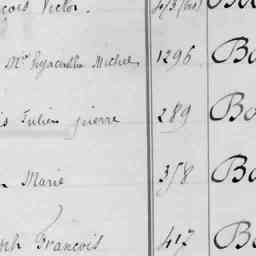 çois Victor.
Mie Hyacinthe Michel 1296 Bo
is Julien pierre 289 Bo
Marie 358 Bo
ph François 417 Bo